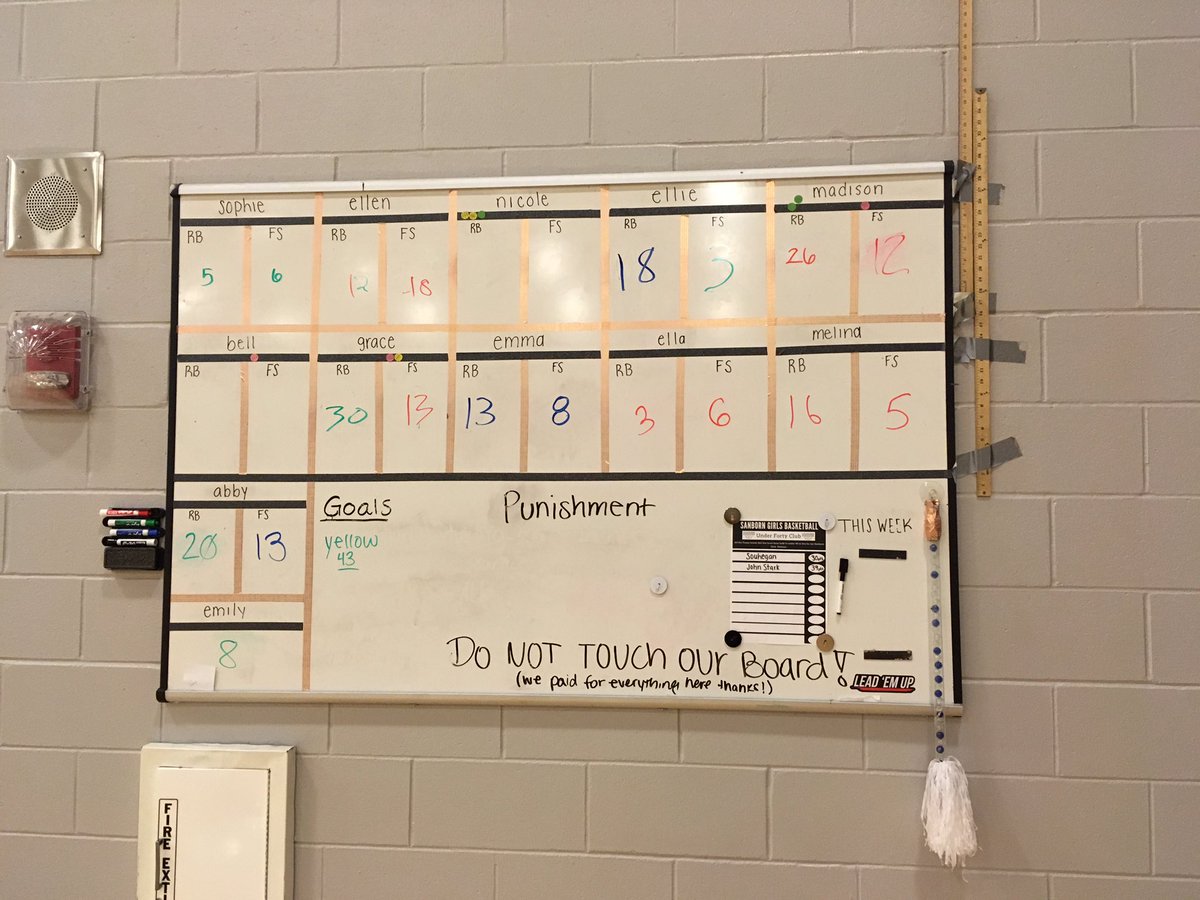 sophie ellen nicole ellie madison
RB FS RB FS RB FS RB FS RB FS
5 6 12 18 18 3 26 12
bell grace emma ella melina
RB FS RB FS RB FS RB FS RB FS
30 13 13 8 3 6 16 5
abby
RB FS
20 13
emily
8
Goals
yellow
43
Punishment
SANBORN GIRLS BASKETBALL
Under Forty Club
Souhegan
John Stark
THIS WEEK
DO NOT TOUCH OUR BOARD!
(we paid for everything here thanks!)
LEAD 'EM UP
FIRE EXT